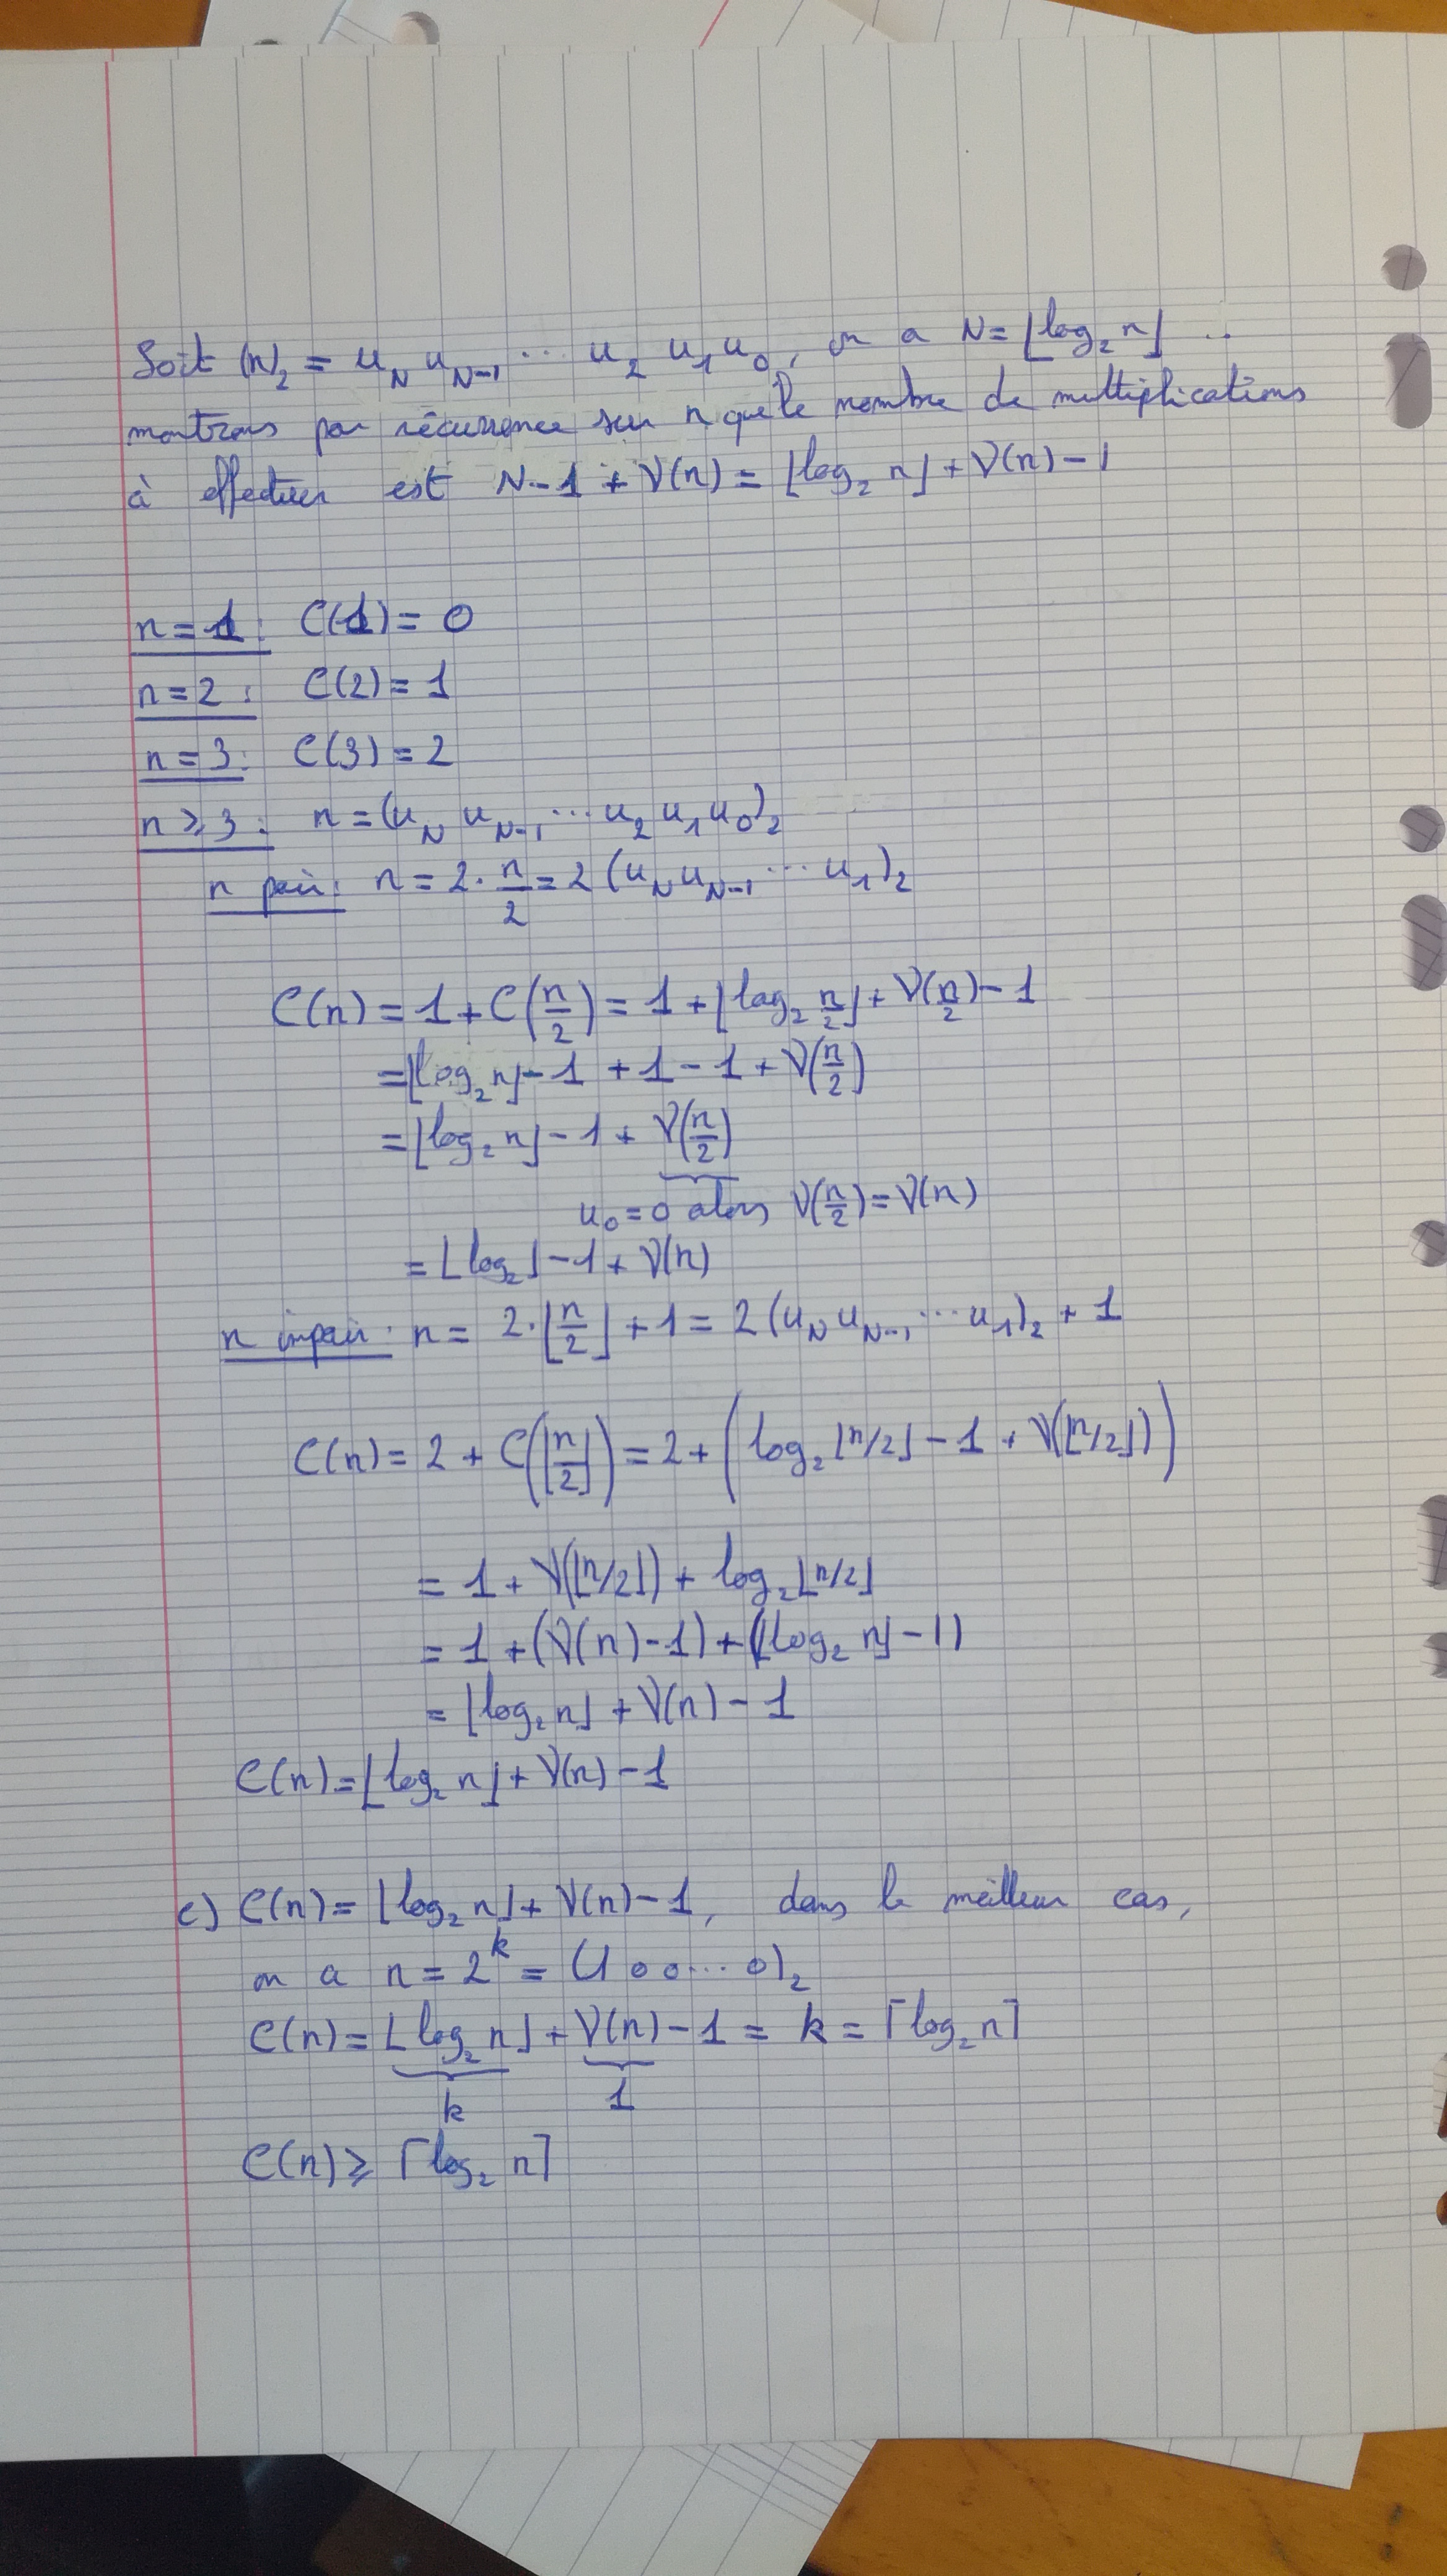 Soit (n)₂ = u_N u_{N-1} ... u₂ u₁ u₀, on a N = ⌊log₂ n⌋ ..
montrons par récurrence sur n que le nombre de multiplications
à effectuer est N - 1 + ν(n) = ⌊log₂ n⌋ + ν(n) - 1
n = 1 : C(1) = 0
n = 2 : C(2) = 1
n = 3 : C(3) = 2
n ≥ 3 : n = (u_N u_{N-1} ... u₂ u₁ u₀)₂
n pair : n = 2 · n/2 = 2 (u_N u_{N-1} ... u₁)₂
C(n) = 1 + C(n/2) = 1 + ⌊log₂ n/2⌋ + ν(n/2) - 1
= ⌊log₂ n⌋ - 1 + 1 - 1 + ν(n/2)
= ⌊log₂ n⌋ - 1 + ν(n/2)
u₀ = 0 alors ν(n/2) = ν(n)
= ⌊log₂⌋ - 1 + ν(n)
n impair : n = 2 · ⌊n/2⌋ + 1 = 2 (u_N u_{N-1} ... u₁)₂ + 1
C(n) = 2 + C(⌊n/2⌋) = 2 + (log₂ ⌊n/2⌋ - 1 + ν(⌊n/2⌋))
= 1 + ν(⌊n/2⌋) + log₂ ⌊n/2⌋
= 1 + (ν(n) - 1) + (⌊log₂ n⌋ - 1)
= ⌊log₂ n⌋ + ν(n) - 1
C(n) = ⌊log₂ n⌋ + ν(n) - 1
c) C(n) = ⌊log₂ n⌋ + ν(n) - 1, dans le meilleur cas,
on a n = 2^k = (100...0)₂
C(n) = ⌊log₂ n⌋ + ν(n) - 1 = k = ⌈log₂ n⌉
k 1
C(n) ≥ ⌈log₂ n⌉